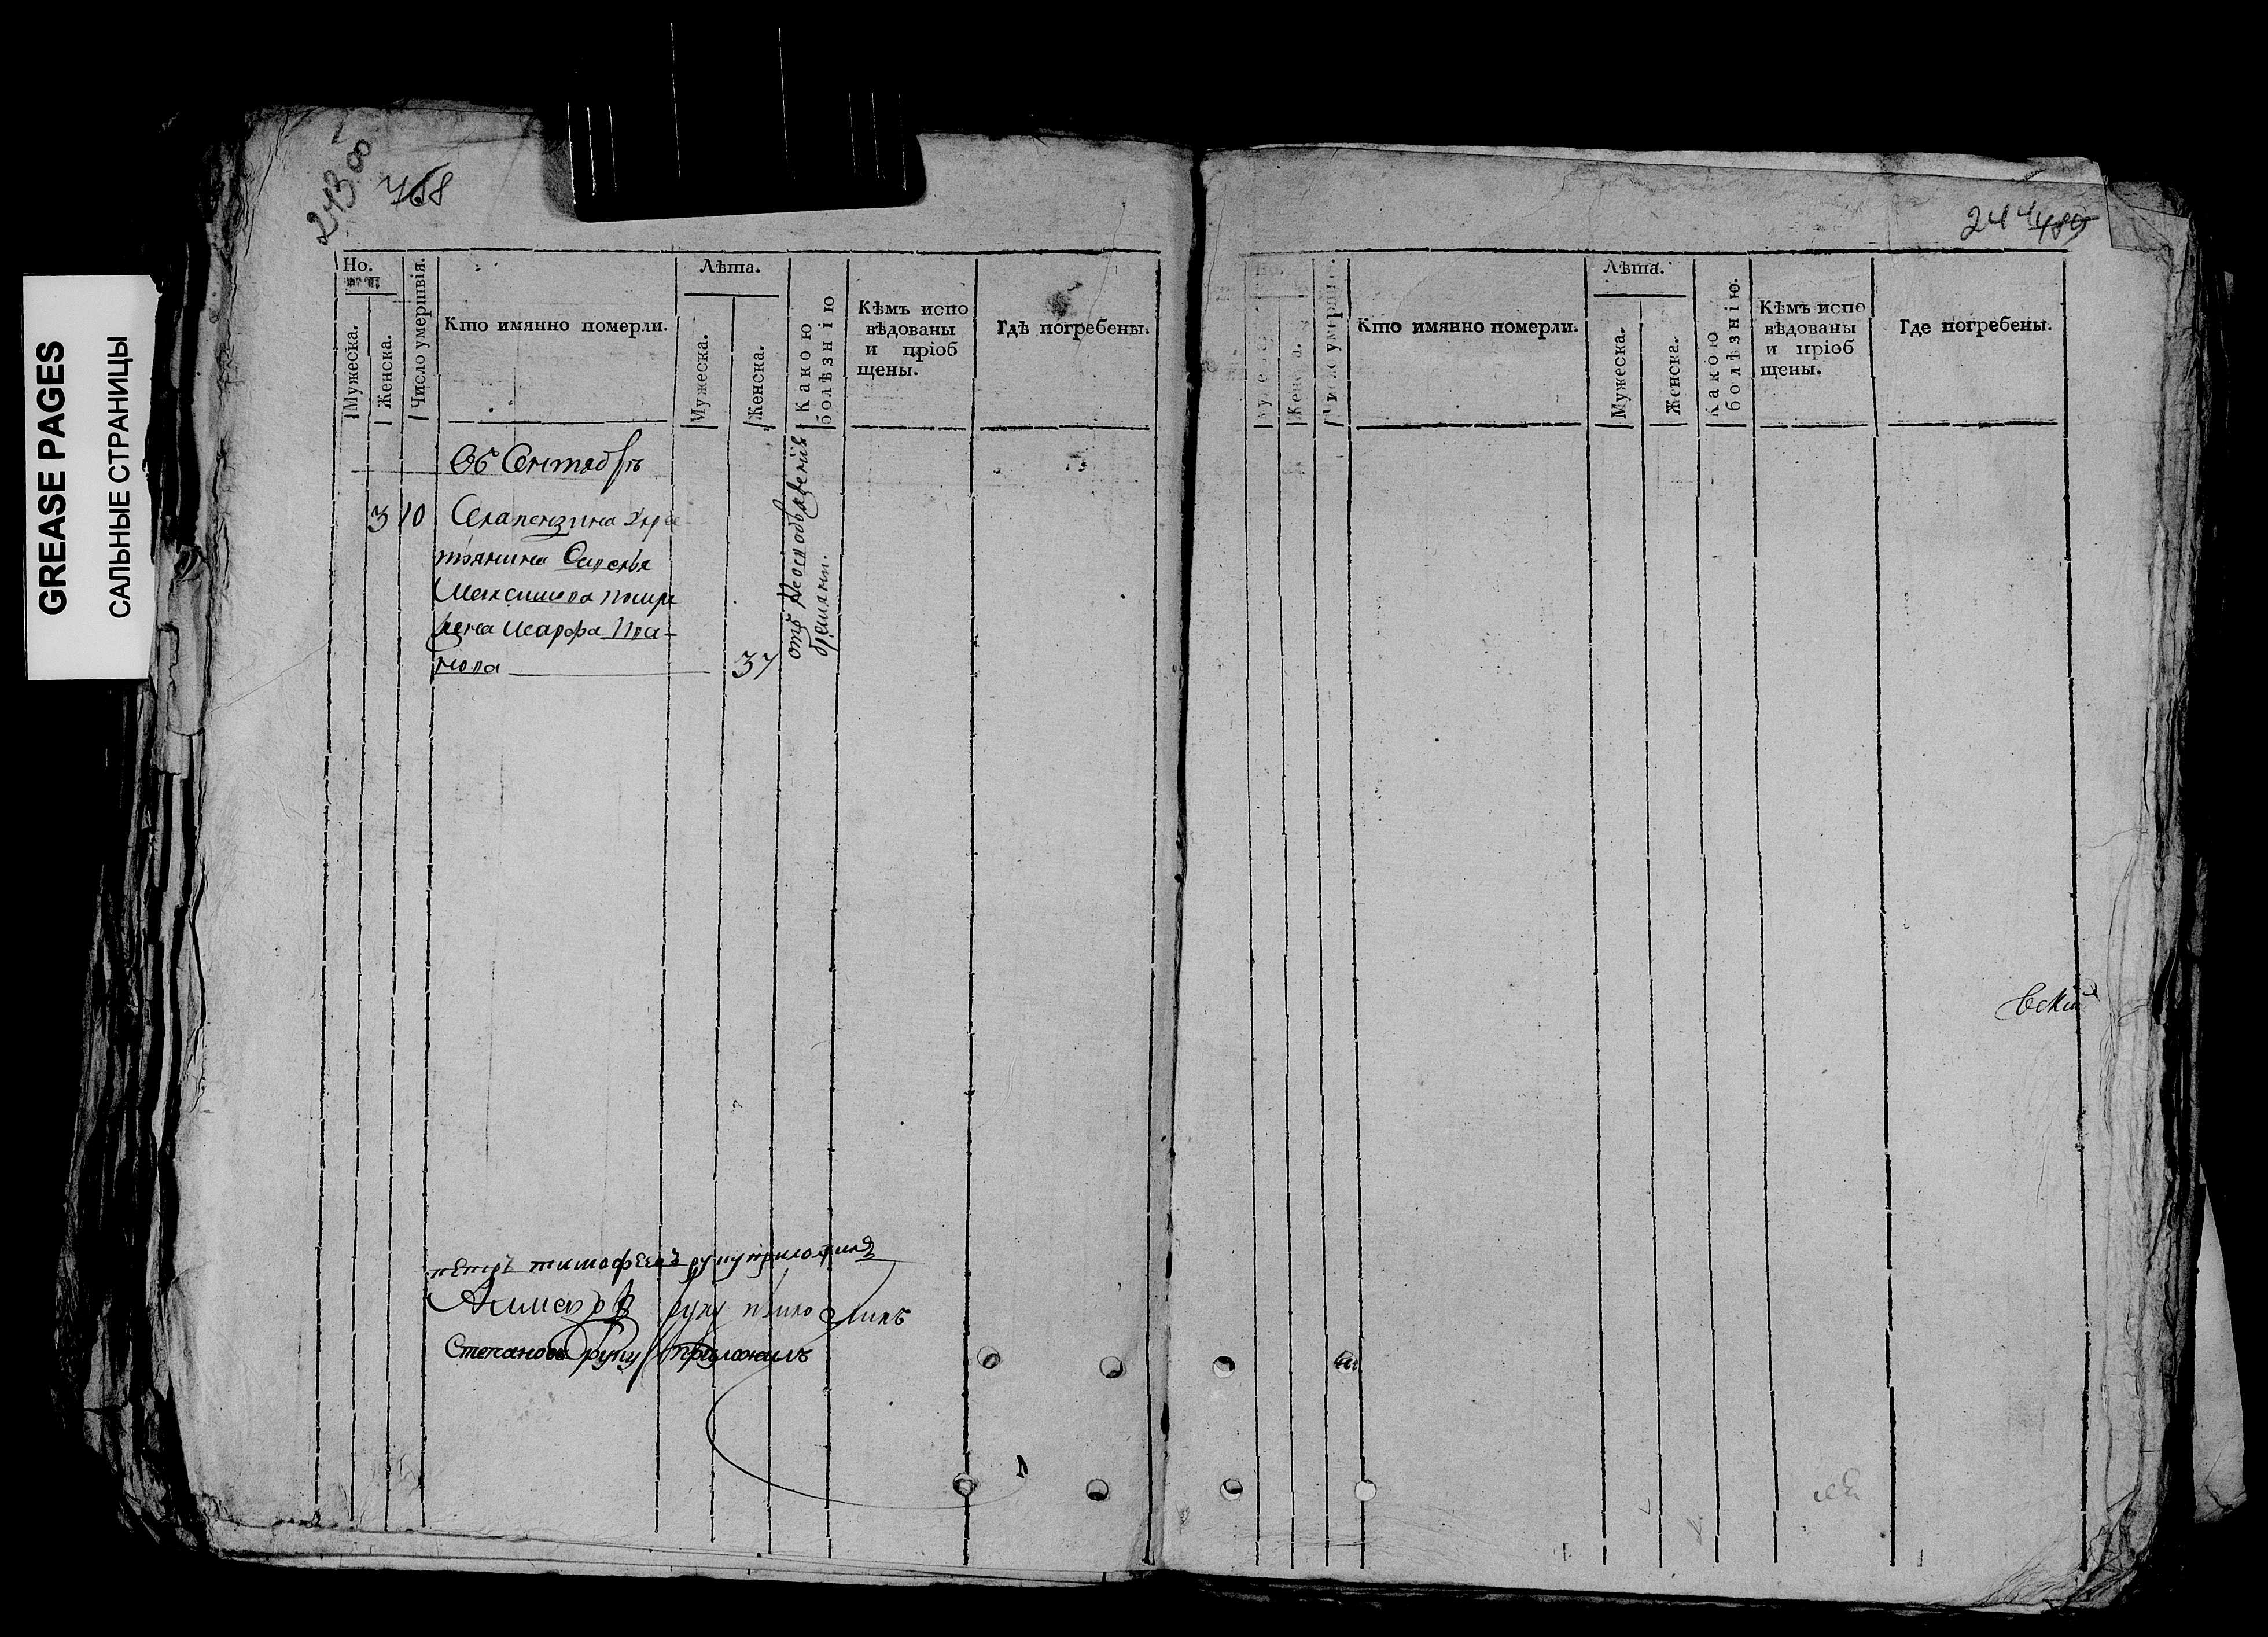 GREASE PAGES
САЛЬНЫЕ СТРАНИЦЫ
243 об
Но.
Мужеска.
Женска.
Число умершвія.
Кто имянно померли.
Лѣта.
Мужеска.
Женска.
Какою болѣзнію
Кѣмъ испо
вѣдованы
и пріоб
щены.
Гдѣ погребены.
Въ Сентябрѣ
3 10 Села
тьянина Савелья
Максимова помер
жена Марфа Ива-
нова 37
отъ
бремяни.
Петръ Тимофеевъ руку приложилъ
руку приложилъ
Степановъ руку приложилъ
244
Но.
Мужеска.
Женска.
Число умершвія.
Кто имянно померли.
Лѣта.
Мужеска.
Женска.
Какою болѣзнію.
Кѣмъ испо
вѣдованы
и пріоб
щены.
Где погребены.
вскій